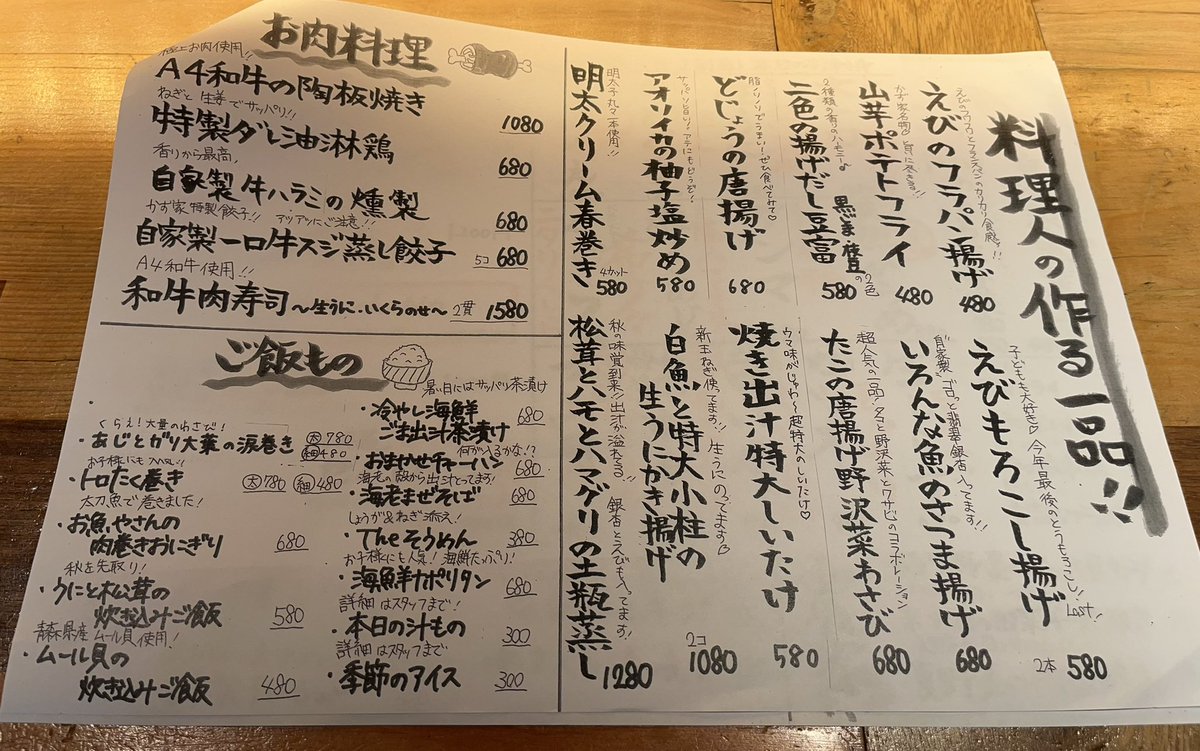 料理人の作る一品!!
えびのフラパン揚げ
480
かず家名物
山芋ポテトフライ
480
2種類の香りのハーモニー♪
二色の揚げだし豆富
黒ごま・枝豆の2色
580
脂ノリノリでうまい〜ぜひ食べてみて♡
どじょうの唐揚げ
680
アオリイカの柚子塩炒め
580
明太子丸々一本使用!!
明太クリーム春巻き
4カット
580
子どもも大好き♡ 今年最後のとうもろこし! Last!
えびもろこし揚げ
2本 580
自家製 ゴロっと翡翠銀杏入ってます!!
いろんな魚のさつま揚げ
680
超人気の一品! タコと野沢菜とワサビのコラボレーション
たこの唐揚げ野沢菜わさび
680
ウマ味がじゅわ〜超特大のしいたけ♡
焼き出汁特大しいたけ
580
新玉ねぎ使ってます! 生うにのってます
白魚と特大小柱の
生うにかき揚げ
2コ
1080
秋の味覚到来!! 出汁が溢れる!! 銀杏とえびも入ってます!
松茸とハモとハマグリの土瓶蒸し
1280
お肉料理
極上お肉使用!!
A4和牛の陶板焼き
1080
ねぎと生姜でサッパリ!!
特製ダレ油淋鶏
680
香りから最高
自家製牛ハラミの燻製
680
かず家特製餃子!! アツアツにご注意!!
自家製一口牛スジ蒸し餃子
5コ 680
A4和牛使用!!
和牛肉寿司〜生うに・いくらのせ〜 2貫 1580
ご飯もの
くらえ!大量のわさび!
・あじとガリ大葉の涙巻き 太780
細480
お子様にも
・トロたく巻き 太780 細480
太刀魚で巻きました!
・お魚やさんの
肉巻きおにぎり 680
秋を先取り!
・うにと松茸の
炊き込みご飯 580
青森県産ムール貝使用!
・ムール貝の
炊き込みご飯 480
暑い日にはサッパリ茶漬け
・冷やし海鮮
ごま出汁茶漬け 680
何が入るかな!?
・おまかせチャーハン 680
海老の殻から出汁とってます!
・海老まぜそば 680
しょうが&ねぎ添え!
・Theそうめん 380
お子様にも人気! 海鮮たっぷり!
・海鮮ナポリタン 680
詳細はスタッフまで!
・本日の汁もの 300
詳細はスタッフまで
・季節のアイス 300